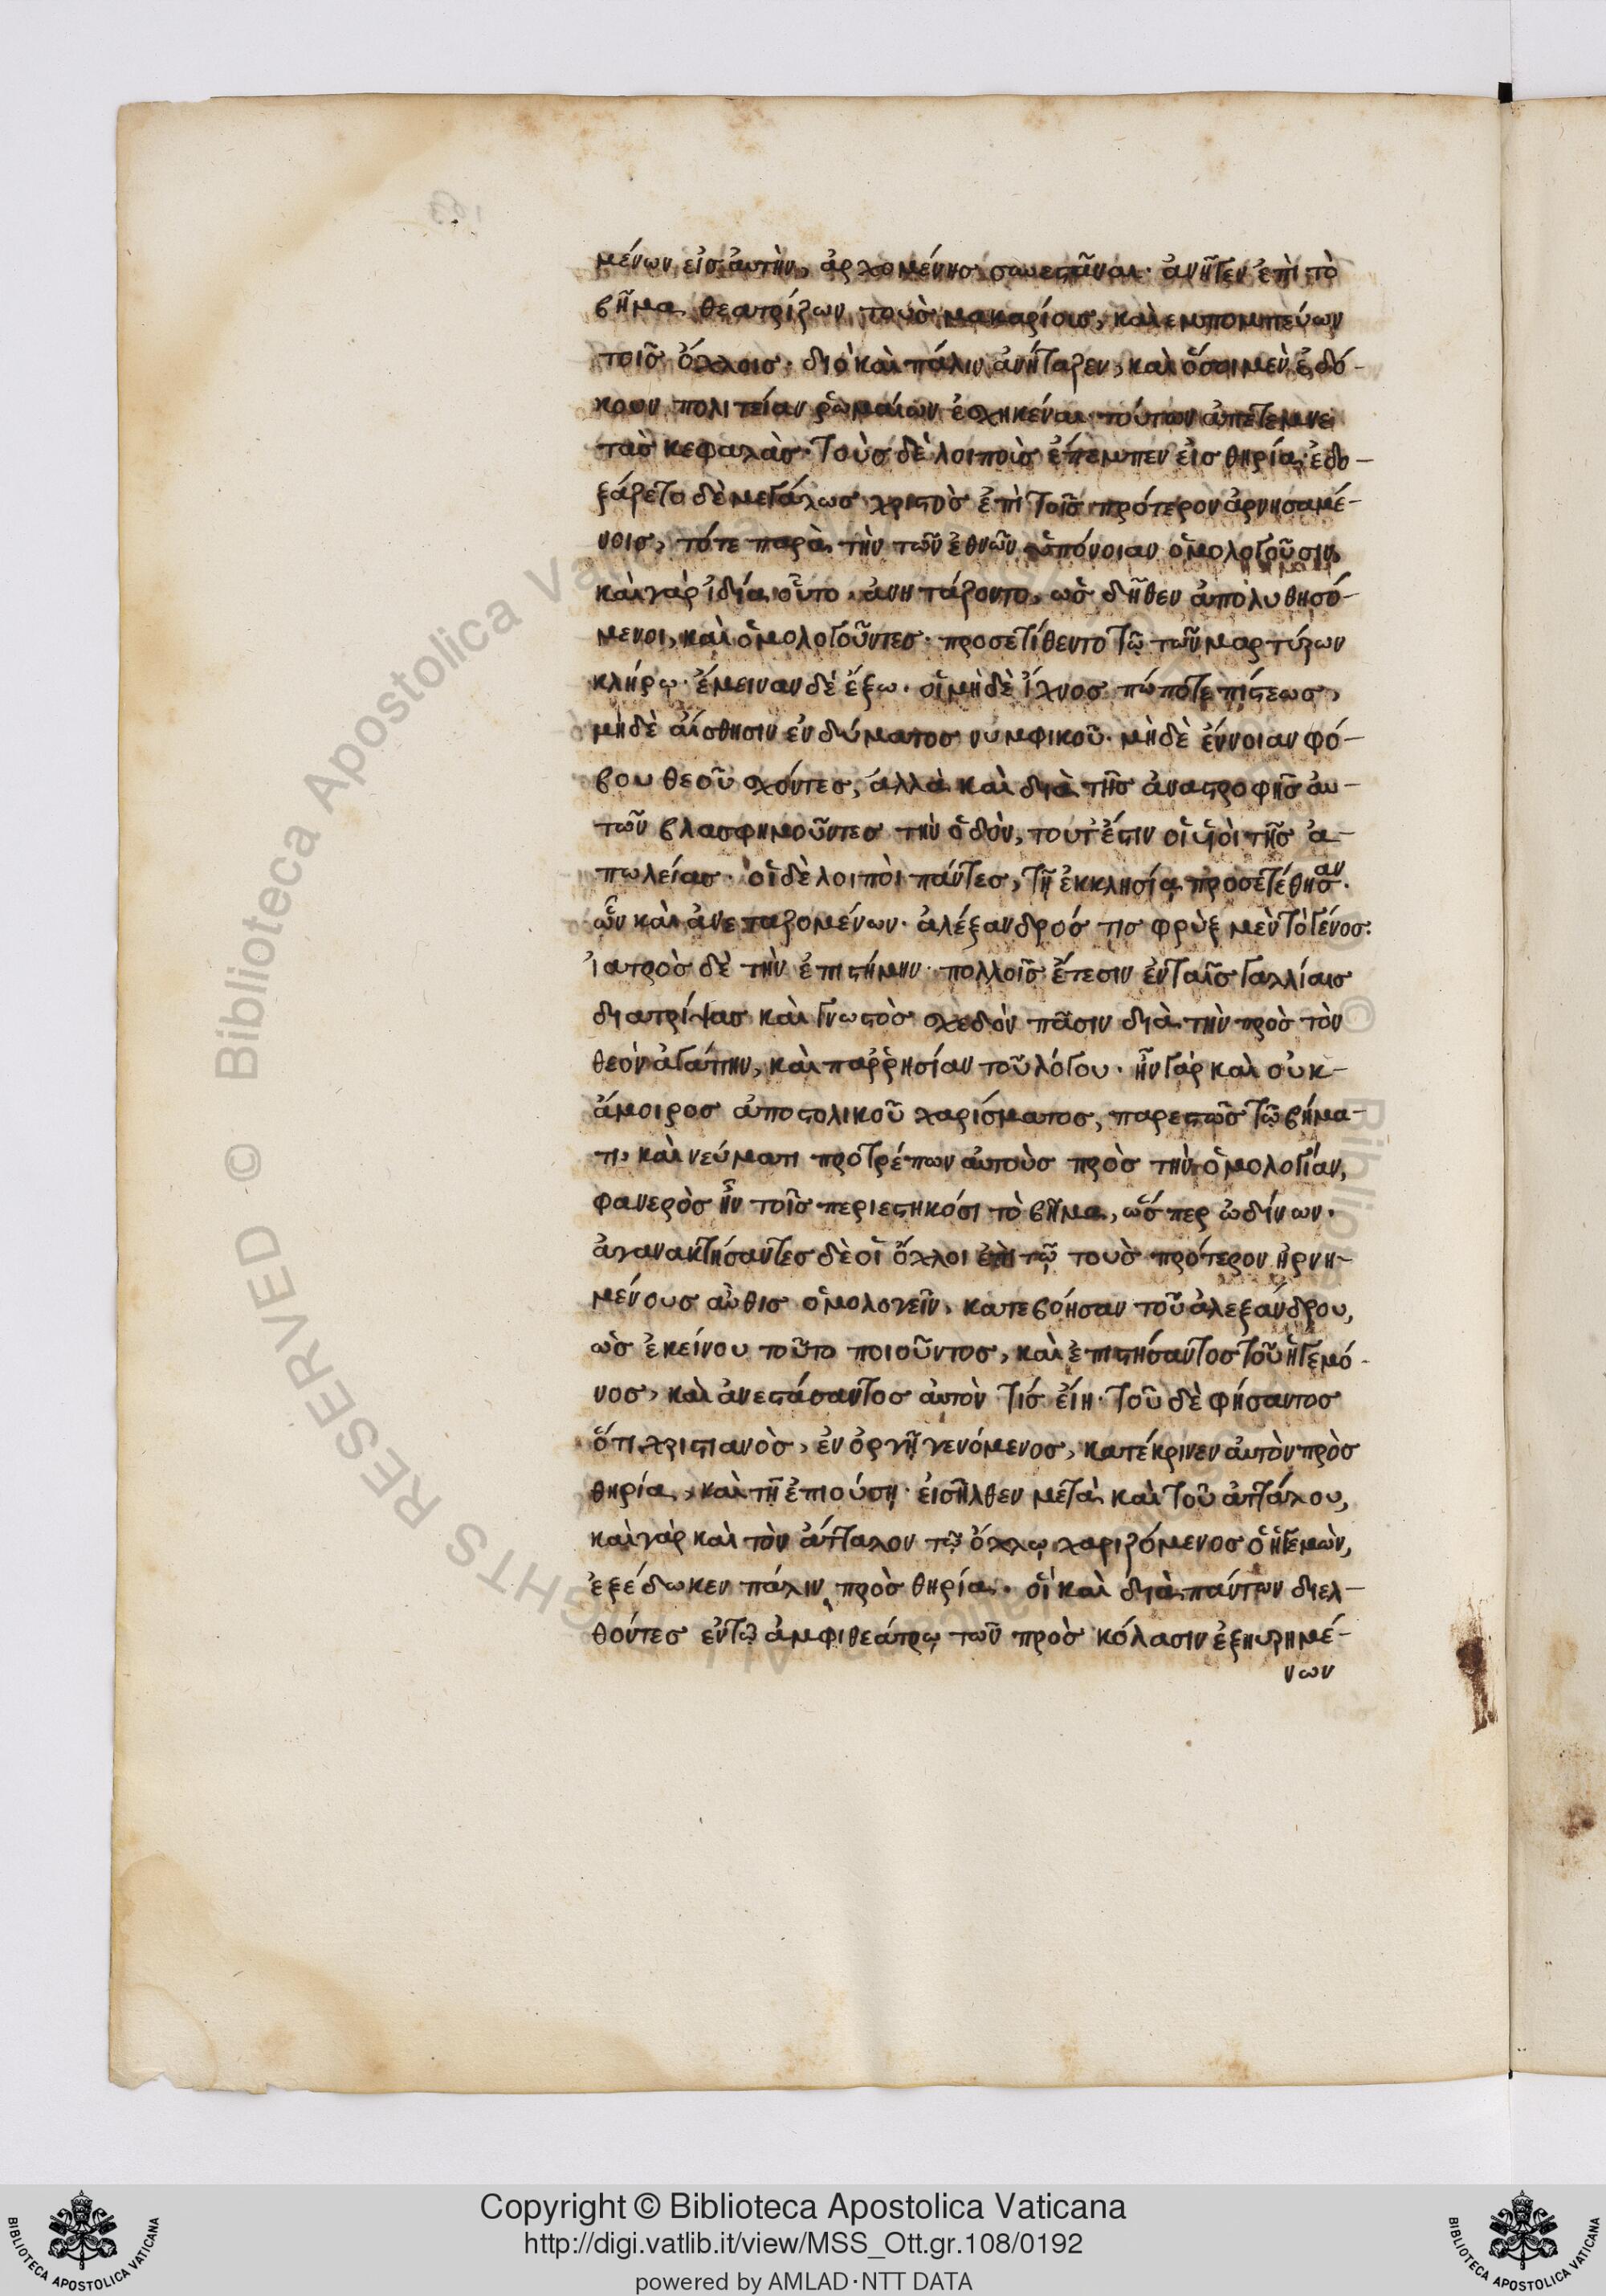 μένων εἰς ἀυτὴν, ἀρχομένης συνεστᾶναι· ἀνῆγεν ἐπὶ τὸ
βῆμα θεατρίζων τοὺς μακαρίους, καὶ εμπομπεύων
τοῖς ὄχλοις· διὸ καὶ πάλιν ἀνήταζεν, καὶ ὅσοι μὲν ἐδό-
κουν πολιτείαν ῥωμαίων ἐσχηκέναι τούτων ἀπέτεμνε
τὰς κεφαλὰς· τοὺς δὲ λοιποὺς ἔπεμπεν εἰς θηρία· ἐδο-
ξάζετο δὲ μεγάλως χριστὸς ἐπὶ τοῖς πρότερον ἀρνησαμέ-
νοις, τότε παρὰ τὴν τῶν ἐθνῶν ὑπόνοιαν ὁμολογοῦσιν,
καὶ γὰρ ἰδία οὗτο ἀνητάζοντο, ὡς δῆθεν ἀπολυθησό-
μενοι, καὶ ὁμολογοῦντες· προσετίθεντο τῷ τῶν μαρτύρων
κλήρῳ· ἔμειναν δὲ ἔξω· οἱ μὴ δὲ ἴχνος πώποτε πίστεως,
μὴ δὲ αἴσθησιν ἐνδύματος νυμφικοῦ· μὴ δὲ ἔννοιαν φό-
βου θεοῦ σχόντες, ἀλλὰ καὶ διὰ τῆς ἀναστροφῆς ἀυ-
τῶν βλασφημοῦντες τὴν ὁδὸν, τουτέστιν οἱ υἱοὶ τῆς ἀ-
πωλείας· οἱ δὲ λοιποὶ πάντες, τῇ ἐκκλησίᾳ προσετέθησαν·
ὧν καὶ ἀνεταζομένων· ἀλέξανδρός τις φρὺξ μὲν τὸ γένος·
ἰατρὸς δὲ τὴν ἐπιστήμην· πολλοῖς ἔτεσιν ἐν ταῖς γαλλίαις
διατρίψας καὶ γνωστὸς σχεδὸν πᾶσιν διὰ τὴν πρὸς τὸν
θεὸν ἀγάπην, καὶ παῤῥησίαν τοῦ λόγου· ἦν γὰρ καὶ οὐκ-
ἄμοιρος ἀποστολικοῦ χαρίσματος, παρεστῶς τῷ βήμα-
τι, καὶ νεύματι προτρέπων ἀυτοὺς πρὸς τὴν ὁμολογίαν,
φανερὸς ἦν τοῖς περιεστηκόσι τὸ βῆμα, ὥσπερ ὠδίνων·
ἀγανακτήσαντες δὲ οἱ ὄχλοι ἐπὶ τῷ τοὺς πρότερον ἠρνη-
μένους αὖθις ὁμολογεῖν, κατεβόησαν τοῦ ἀλεξάνδρου,
ὡς ἐκείνου τοῦτο ποιοῦντος, καὶ ἐπιστήσαντος τοῦ ἡγεμό-
νος, καὶ ἀνεστάσαντος ἀυτὸν τίς εἴη· τοῦ δὲ φήσαντος
ὅτι χριστιανὸς, ἐν ὀργῇ γενόμενος, κατέκρινεν ἀυτὸν πρὸς
θηρία, καὶ τῇ ἐπιούσῃ· εἰσῆλθεν μετὰ καὶ τοῦ ἀττάλου,
καὶ γὰρ καὶ τὸν ἄτταλον τῷ ὄχλῳ χαριζόμενος ὁ ἡγεμὼν,
ἐξέδωκεν πάλιν πρὸς θηρία· οἳ καὶ διὰ πάντων διελ-
θόντες ἐν τῷ ἀμφιθεάτρῳ τῶν πρὸς κόλασιν ἐξηυρημέ-
νων
Copyright © Biblioteca Apostolica Vaticana
http://digi.vatlib.it/view/MSS_Ott.gr.108/0192
powered by AMLAD·NTT DATA